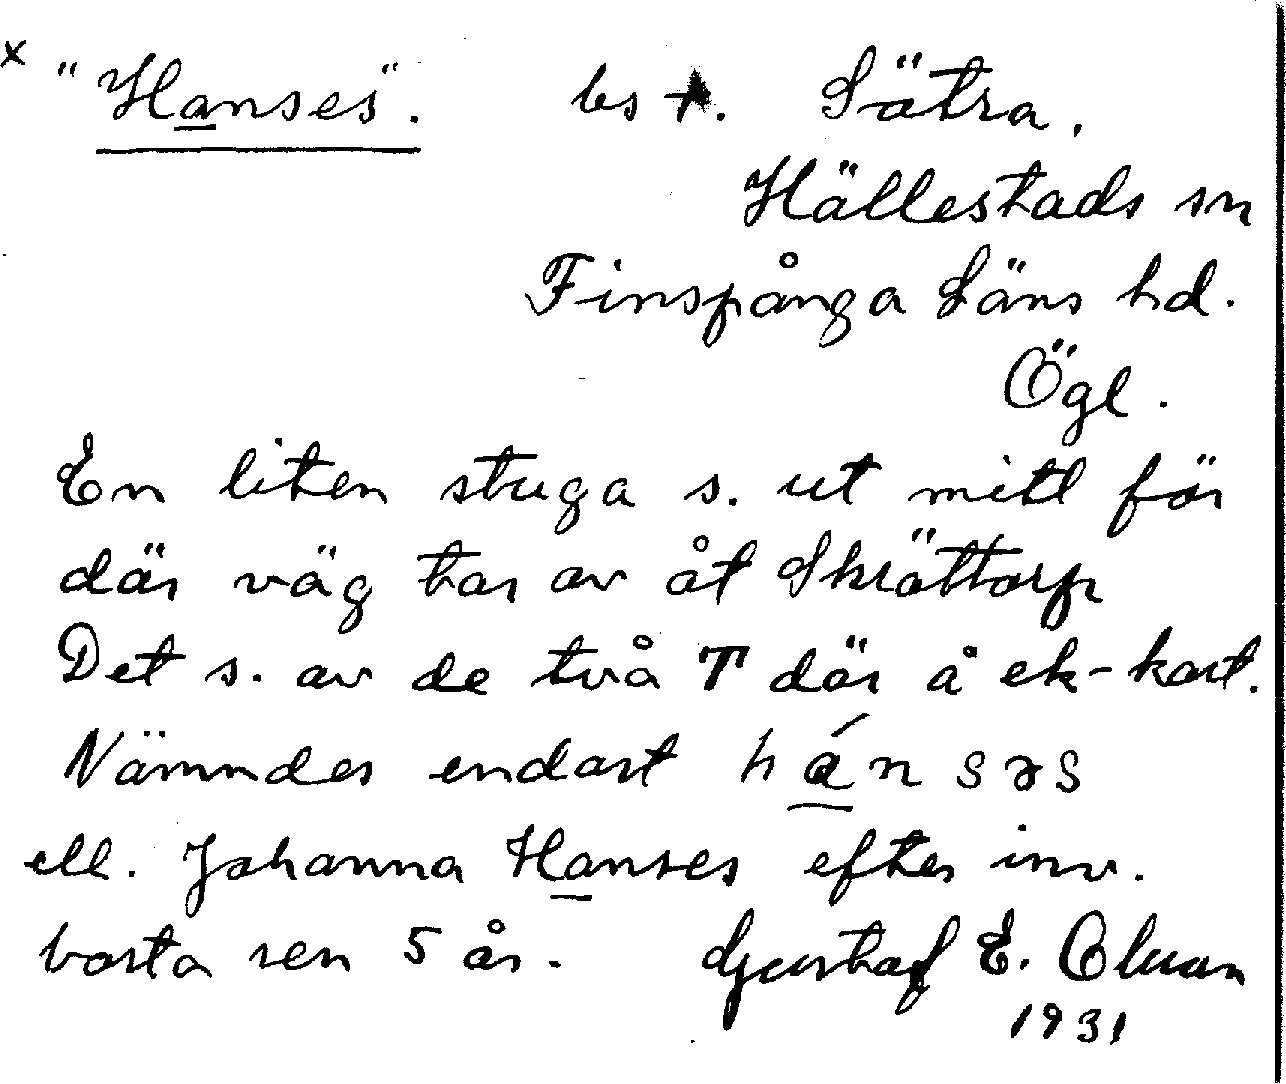 x "Hanses". bs t. Sätra.
Hällestads sn
Finspånga Läns hd.
Ögl.
En liten stuga s. ut mitt för
där väg tar av åt Skrättorp
Det s. av de två T där å ek-kart.
Nämndes endast hánsəs
ell. Johanna Hanses efter inv.
borta sen 5 år. Gusthaf E.
1931